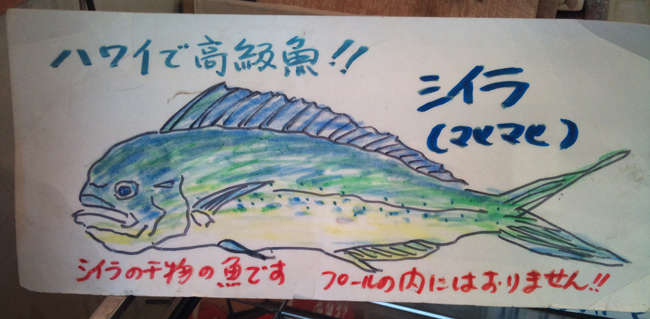 ハワイで高級魚!!
シイラ
(マヒマヒ)
シイラの干物の魚です プールの内にはおりません!!